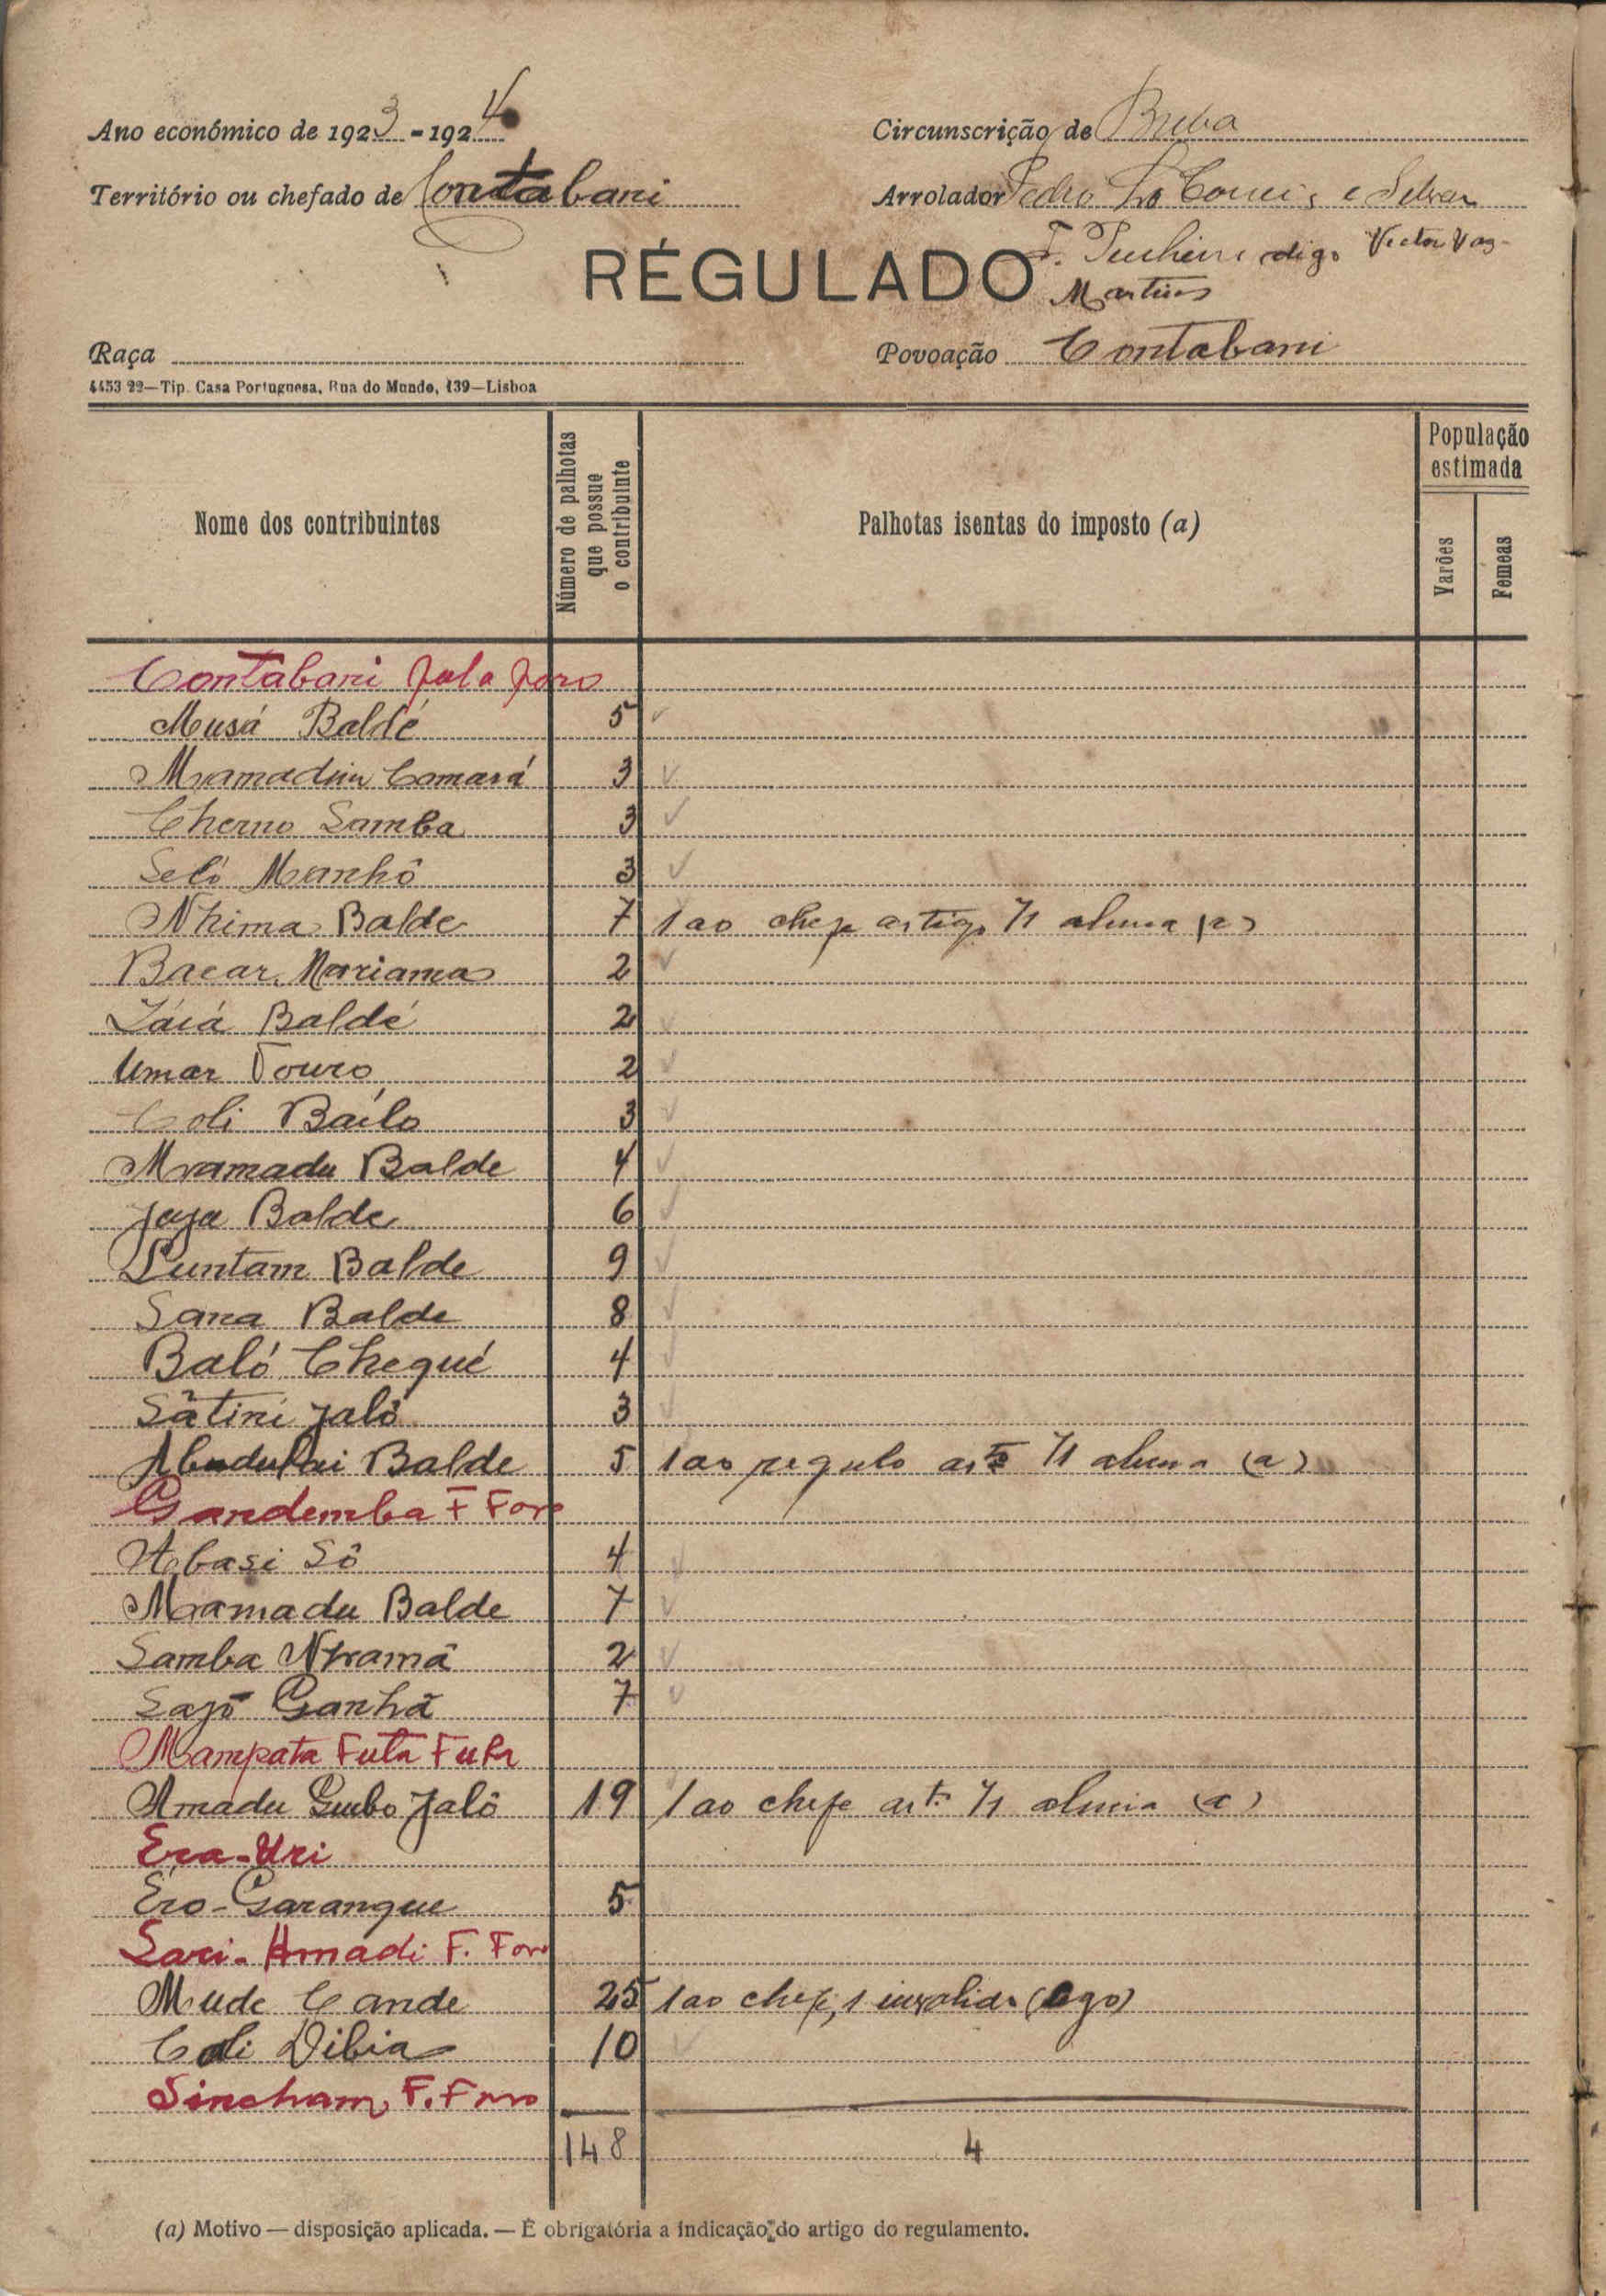 Ano económico de 1923-1924
Circunscrição de Buba
Território ou chefado de Contabani
Arrolador Pedro e Silva
F. digo Victor Vaz
RÉGULADO
Martins
Raça
Povoação Contabani
4453 22—Tip. Casa Portuguesa, Rua do Mundo, 139—Lisboa
Nome dos contribuintes
Número de palhotas que possue o contribuinte
Palhotas isentas do imposto (a)
População estimada
Varões
Femeas
Contabani fula foro
Musá Baldé 5
Mamadu Camará 3
Cherno Samba 3
Seló Manhô 3
Nhima Balde 7 1 ao chefe artigo 71 alinea (a)
Bacar Mariama 2
Iáiá Baldé 2
Umar Touro 2
Coli Bailo 3
Mamadu Balde 4
Jaja Balde 6
Suntam Balde 9
Sana Balde 8
Baló Chequé 4
Sâtini Jaló 3
Abudulai Balde 5 1 ao regulo artº 71 alinea (a)
Gandemba F Foro
Abasi Sô 4
Mamadu Balde 7
Samba Nhamâ 2
Sajo Ganhã 7
Mampata Futa Fula
Amadu Jalô 19 1 ao chefe artº 71 alinea (a)
Era-Uri
Ero-Garangue 5
Sari-Amadi F. Foro
Mude Cande 25 1 ao chefe, 1 invalido (ego)
Coli Dibia 10
Sincham F. Foro
148 4
(a) Motivo — disposição aplicada. — É obrigatória a indicação do artigo do regulamento.